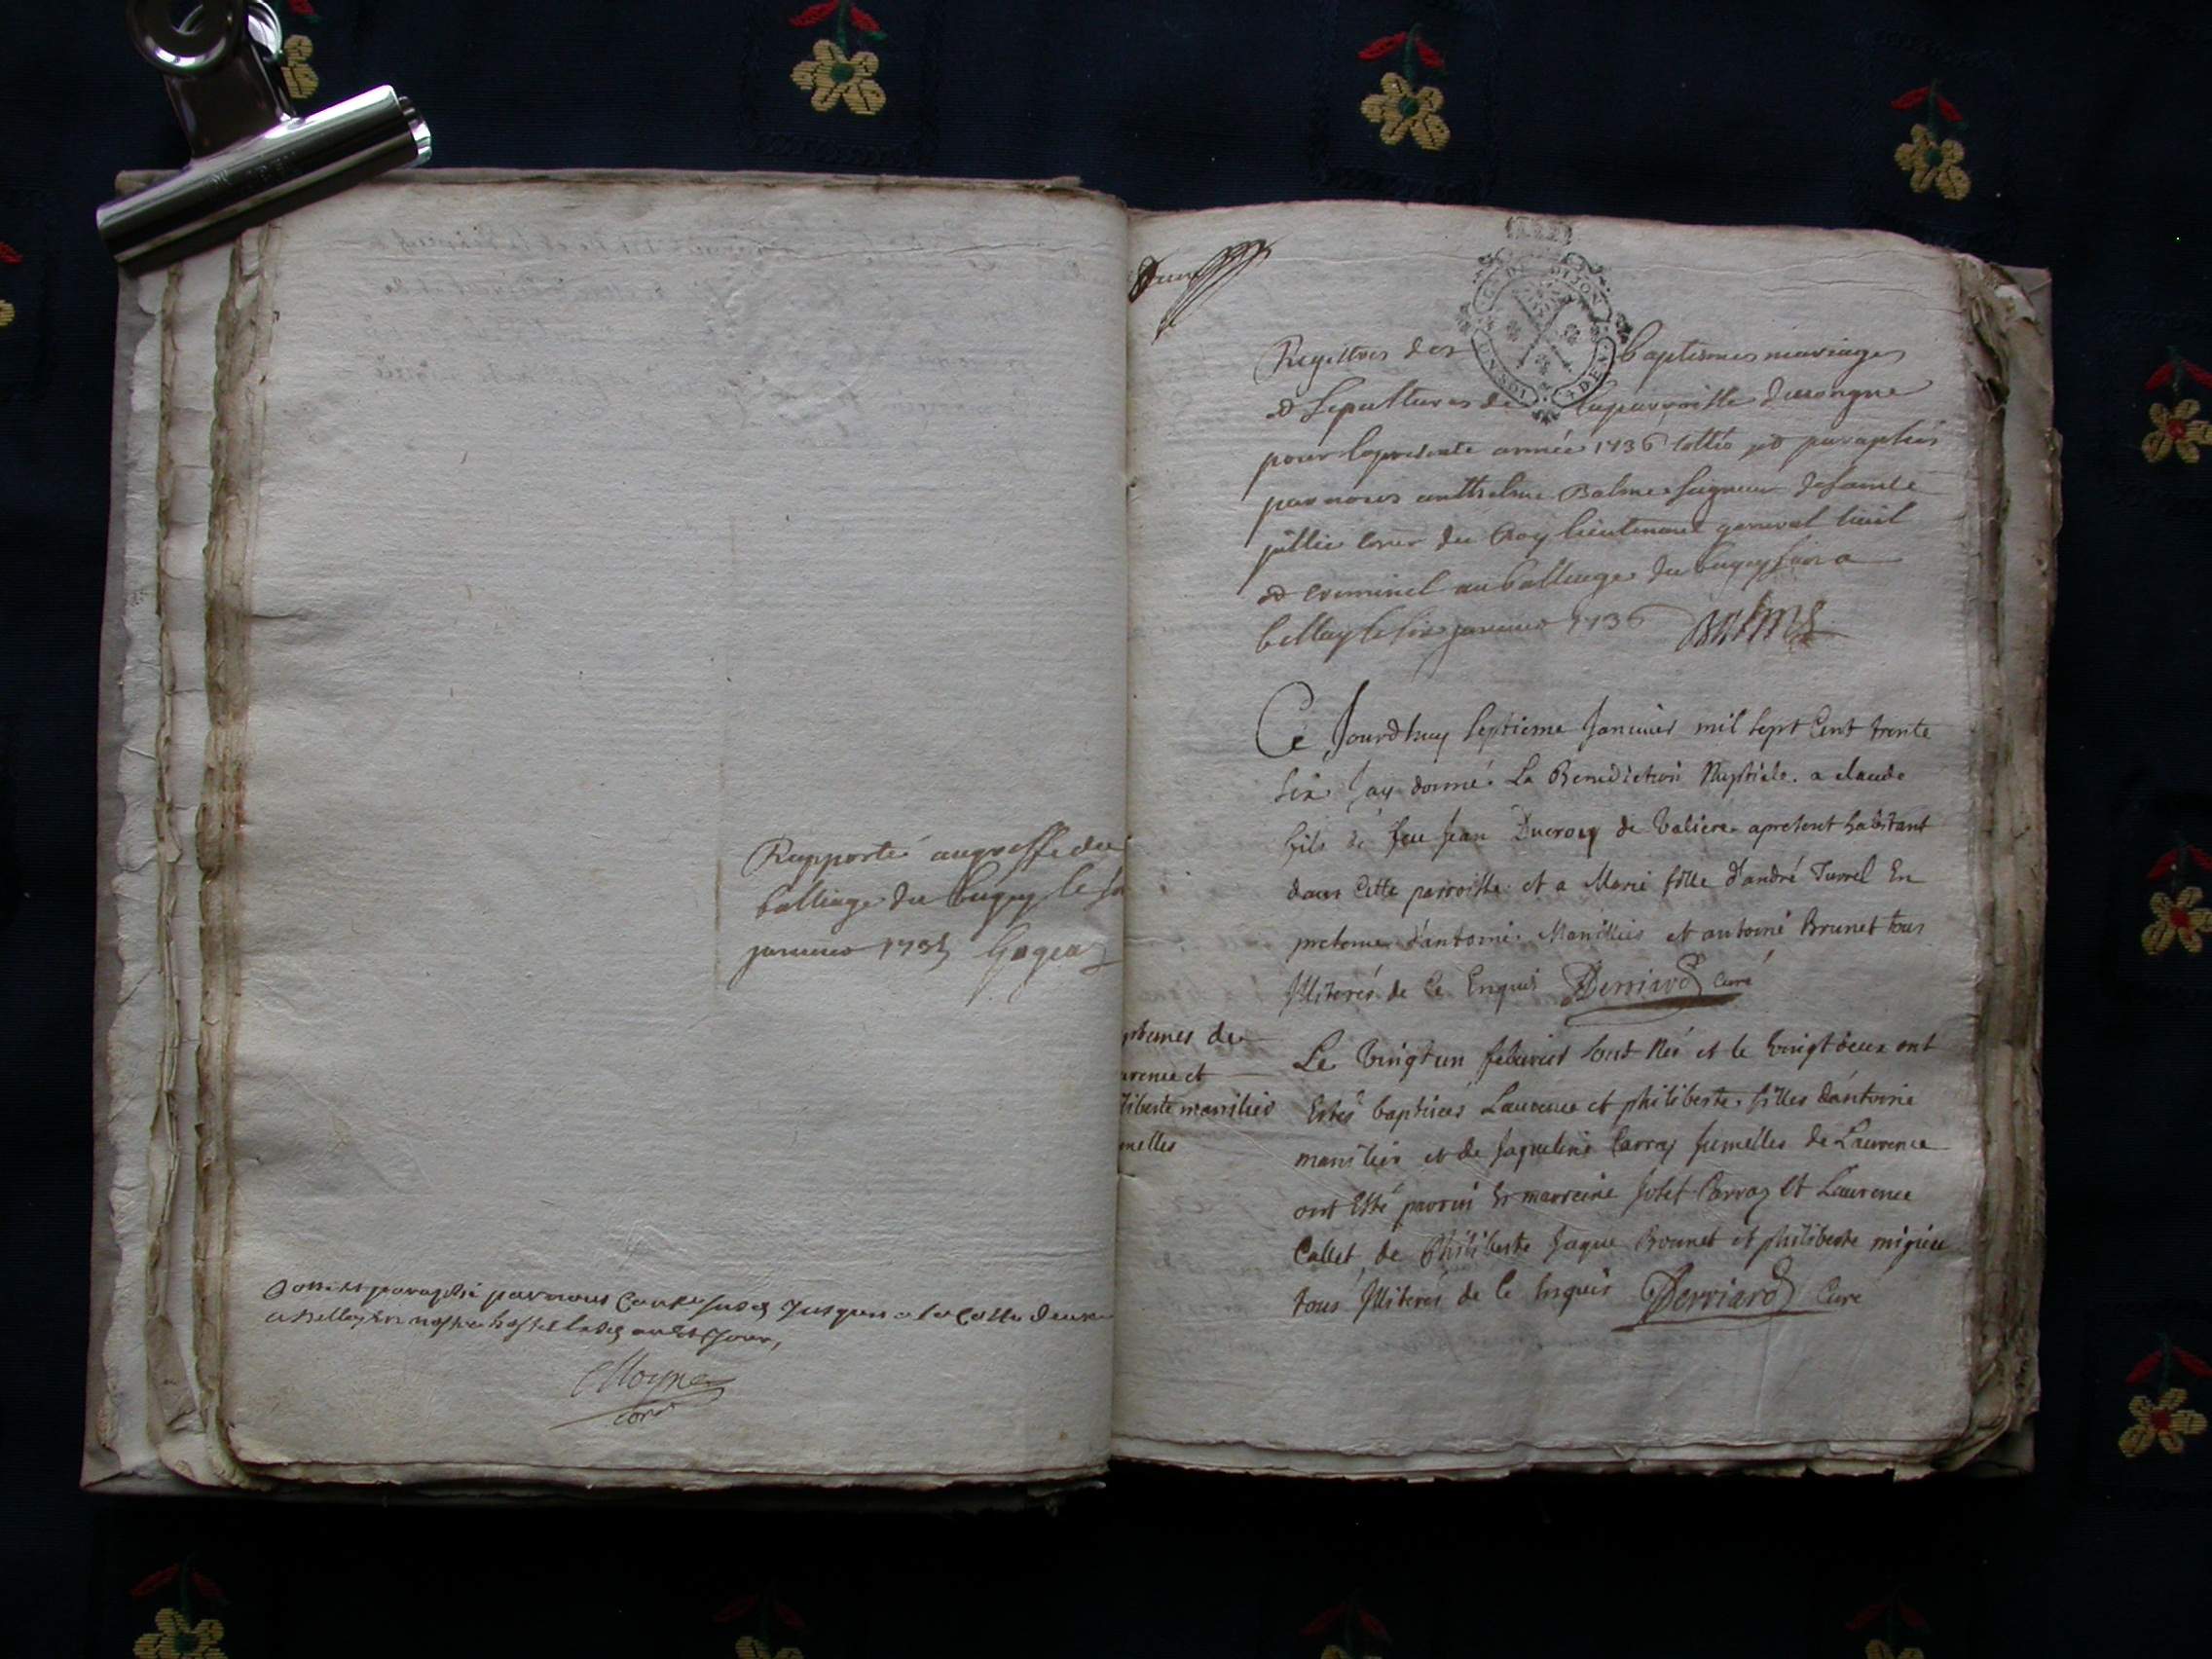 Rapporté au greffe du
balliage du bugey le
janvier 1735
et paraphé par nous
a Belley en nostre hostel
Moyne
DIJON
Registres des baptesmes mariages
et sepultures de la parroisse
pour la presente année 1736 cottés et paraphés
par nous antthelme Balme seigneur de sainte
jullie du Roy lieutenant general civil
et criminel au balliage du bugey
bellay le six janvier 1736 Balme
Ce Jourdhuy septieme Janvier mil sept cent trente
six Jay donné La Benediction Nuptiale a claude
fils de feu Jean Ducroq de Valiere apresent habitant
dans Cette parroisse et a Marie fille d'andré Turrel En
presence d'antoine Manillier et antoine Brunet tous
Illiterés de ce Enquis Derriard curé
ptemes de
urence et
liberte manilier
melles
Le Vingt un febvrier sont Nés et le vingt deux ont
Estés baptisés Laurence et philiberte filles d'antoine
manilier et de Jaqueline Carraz Jumelles de Laurence
ont Esté parrin Et marreine Josef Carraz Et Laurence
Callet, de Philiberte Jaque Brunet et philiberte migieu
tous Illiterés de ce Enquis Derriard Curé